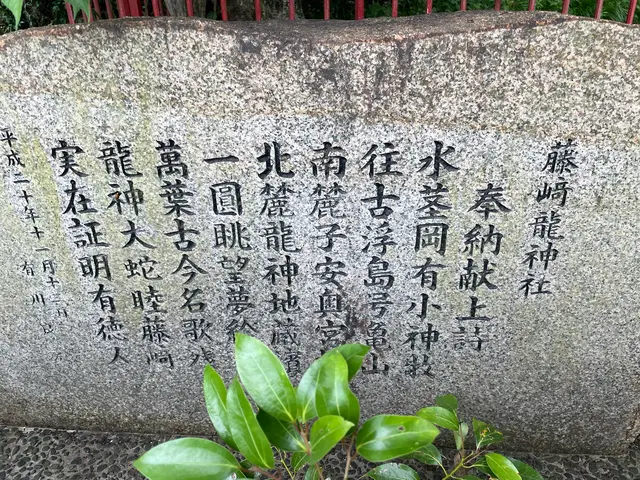 藤﨑龍神社
奉納献上詩
水茎岡有小神数
往古浮島号亀山
南麓子安奥宮
北麓龍神地蔵
一圓眺望夢絵
萬葉古今名歌残
龍神大蛇睦藤﨑
実在証明有徳人
平成二十年十一月十三日
有川